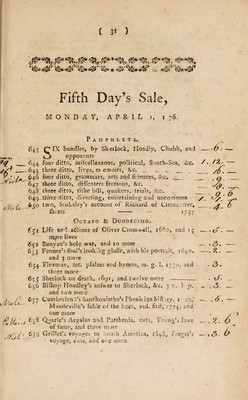 ( 31 )
Fifth Day's Sale,
MONDAY, APRIL 1, 176.
PAMPHLETS.
643 SIX bundles, by Sherlock, Hoadly, Chubb, and — 6. —
opponents
644 four ditto, miscellaneous, political, South-Sea, &c. 1. 12. —
645 three ditto, lives, memoirs, &c. — 16. —
646 four ditto, grammars, arts and sciences, &c. — 9. —
647 three ditto, dissenters sections, &c. — 10. —
648 three ditto, tithe bill, quakers, trials, &c. — 9. 6
649 three ditto, diverting, entertaining and uncommon
650 two, Stukeley's account of Richard of Cirencester, — 4. 6
sheets 1757
OCTAVO & DUODECIMO.
651 Life and actions of Oliver Cromwell, 1680, and 15 — 5. —
more lives
652 Bunyan's holy war, and 10 more — 3. —
653 Fenner's soul's looking glasse, with his portrait, 1640, — 2. —
and 3 more
654 Flexman, &c. psalms and hymns, m. g. l. 1770, and — 3. —
three more
655 Sherlock on death, 1691, and twelve more — 5. —
656 Bishop Hoadley's answer to Sherlock, &c. 3 v. l p. — 3. —
and two more
657 Cumberland's Sanchoniatho's Phenician history, 1720, — 6. —
Mandeville's fable of the bees, vol. first, 1724, and
one more
658 Quarle's Argalus and Parthenia, cuts, Young's love — 2. 6
of fame, and three more
659 Grillet's voyages to South America, 1698, Frezer's — 3. 6
voyage, cuts, and one more